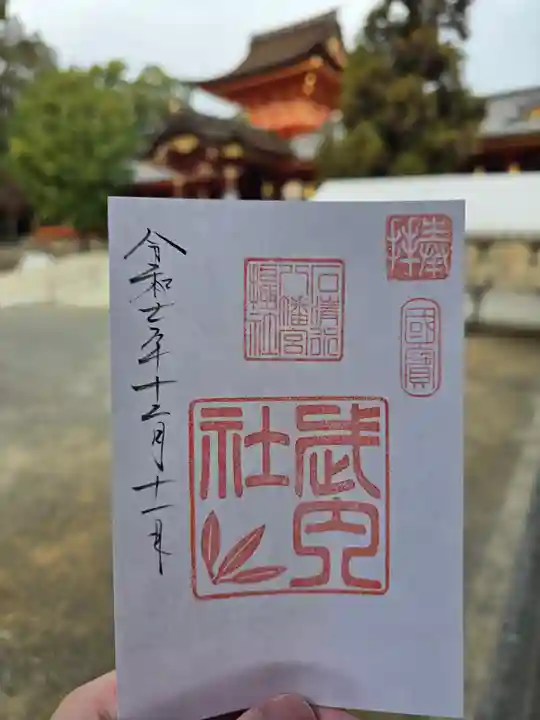 奉拝
國寶
石清水
八幡宮
攝社
武内
社
令和七年十二月十一日